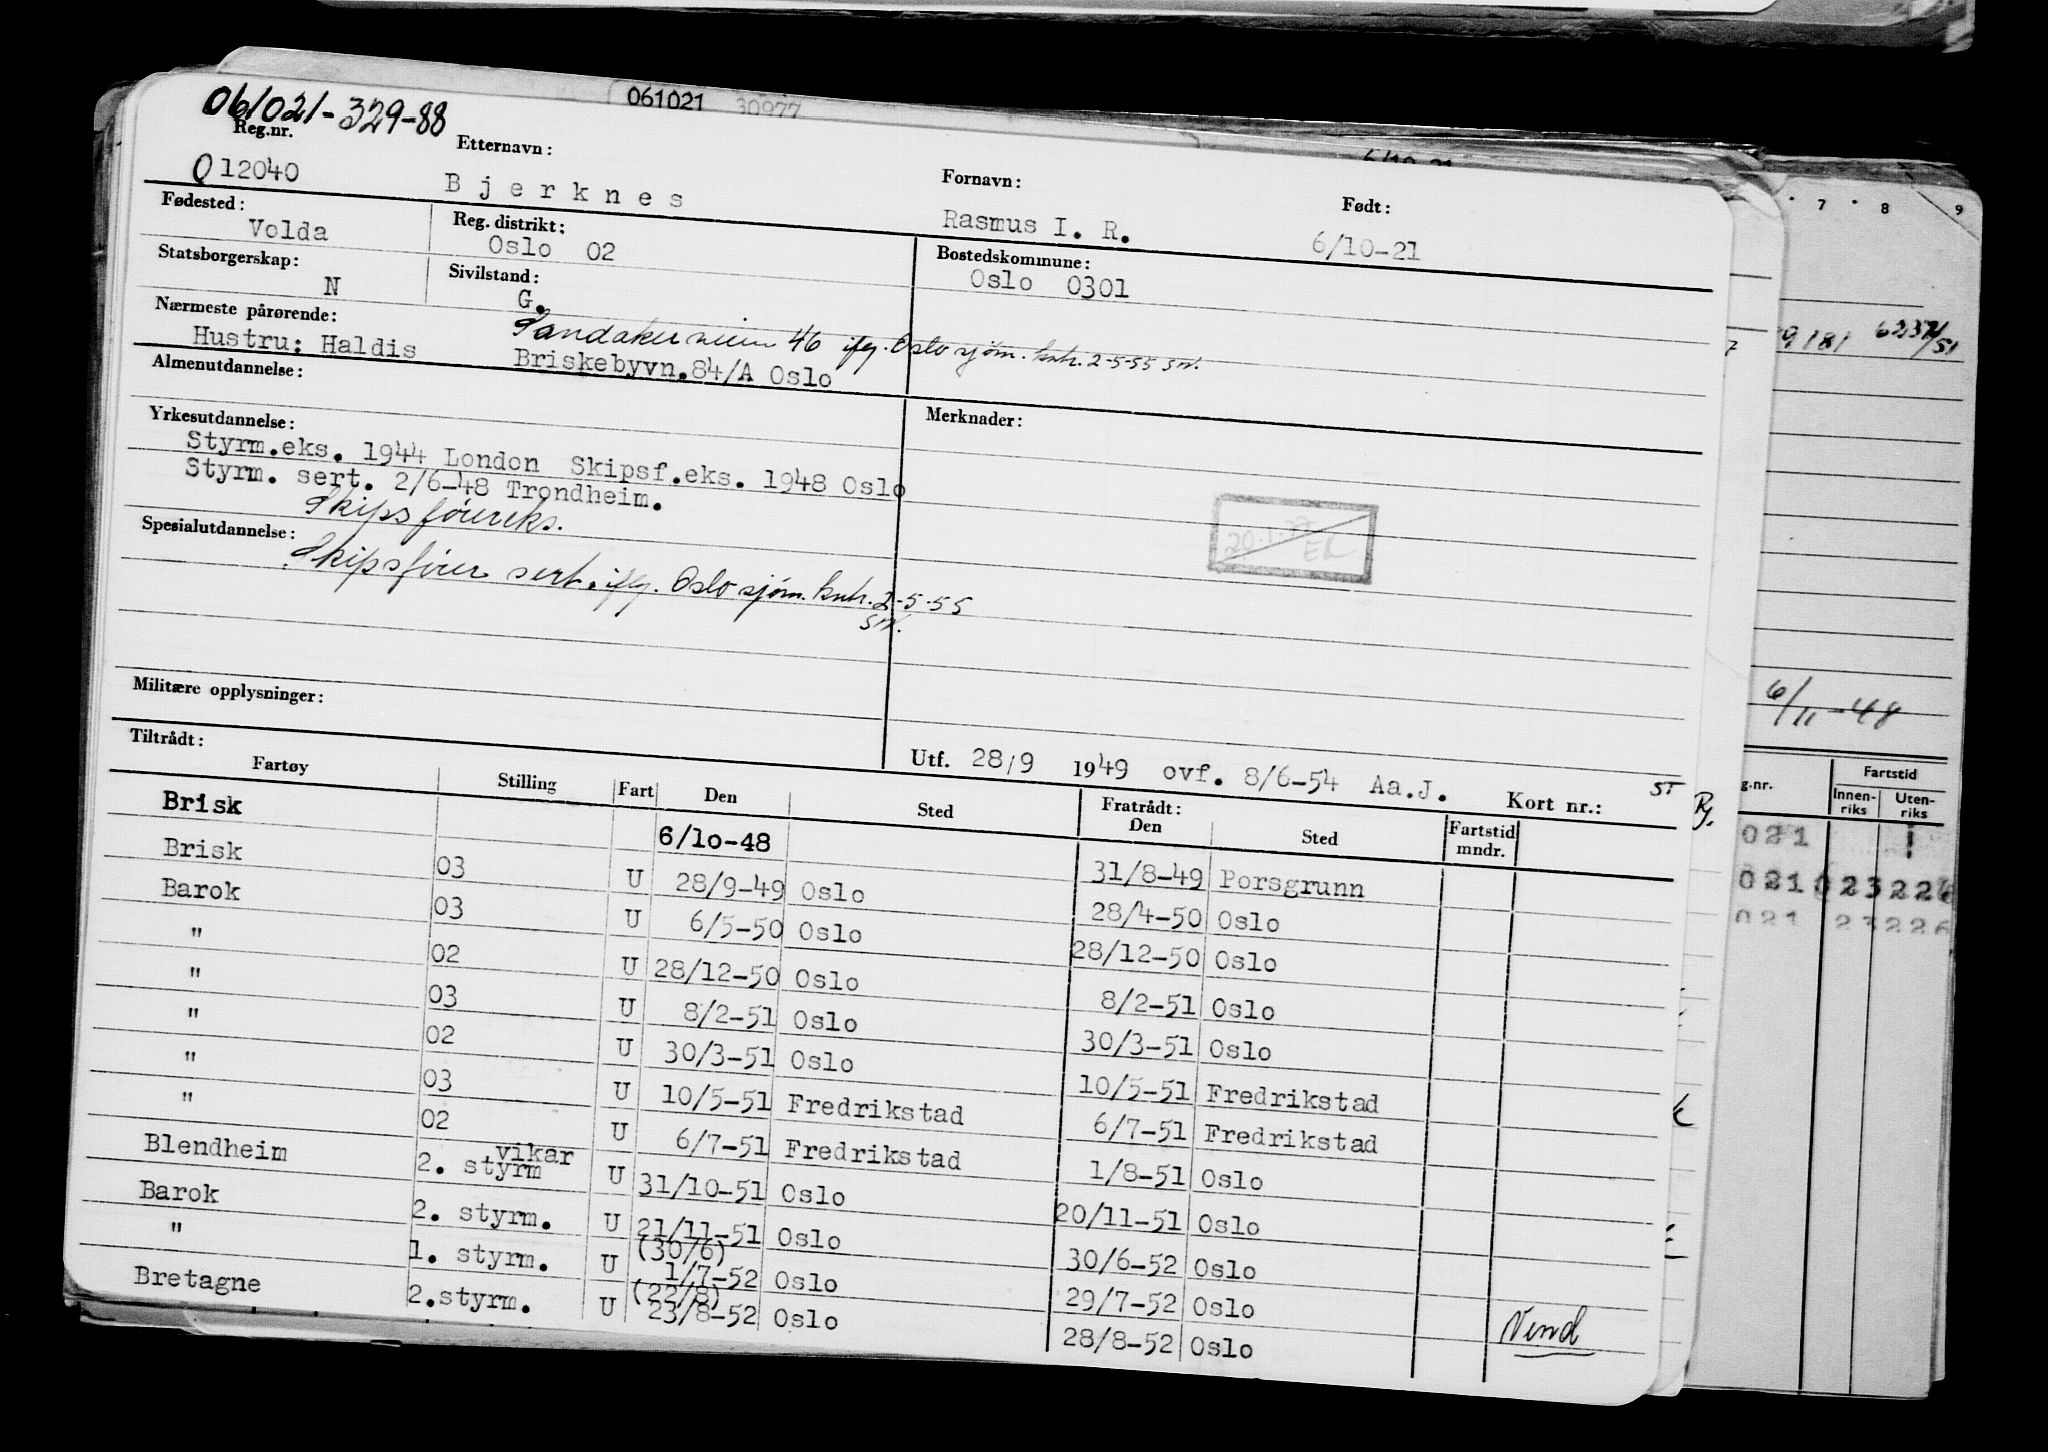 061021 30977
061021-329-88
Reg.nr. Etternavn: Fornavn: Født:
012040 Bjerknes Rasmus I. R. 6/10-21
Fødested: Reg. distrikt: Bostedskommune:
Volda Oslo 02 Oslo 0301
Statsborgerskap: Sivilstand:
N G.
Nærmeste pårørende: Sandakerveien 46 iflg. Oslo sjøm. kntr. 2-5-55 SW.
Hustru: Haldis Briskebyvn.84/A Oslo
Almenutdannelse:
Yrkesutdannelse: Merknader:
Styrm.eks. 1944 London Skipsf.eks. 1948 Oslo
Styrm. sert. 2/6-48 Trondheim.
Skipsførereks.
Spesialutdannelse:
Skipsfører sert. iflg. Oslo sjøm. kntr. 2-5-55
SW.
Militære opplysninger:
Utf. 28/9 1949 ovf. 8/6-54 Aa.J. Kort nr.: ST
Tiltrådt: Fratrådt:
Fartøy Stilling Fart Den Sted Den Sted Fartstid mndr.
Brisk 6/10-48 31/8-49 Porsgrunn
Brisk 03 U 28/9-49 Oslo 28/4-50 Oslo
Barok 03 U 6/5-50 Oslo 28/12-50 Oslo
" 02 U 28/12-50 Oslo 8/2-51 Oslo
" 03 U 8/2-51 Oslo 30/3-51 Oslo
" 02 U 30/3-51 Oslo 10/5-51 Fredrikstad
" 03 U 10/5-51 Fredrikstad 6/7-51 Fredrikstad
" 02 U 6/7-51 Fredrikstad 1/8-51 Oslo
Blendheim vikar 2. styrm U 31/10-51 Oslo 20/11-51 Oslo
Barok 2. styrm. U 21/11-51 Oslo 30/6-52 Oslo
" 1. styrm. U (30/6) 1/7-52 Oslo 29/7-52 Oslo
Bretagne 2.styrm. U (22/8) 23/8-52 Oslo 28/8-52 Oslo
Vend
7 8 9
6/11-48
g.nr. Fartstid
Innen-riks Uten-riks
021
021 023226
021 23226